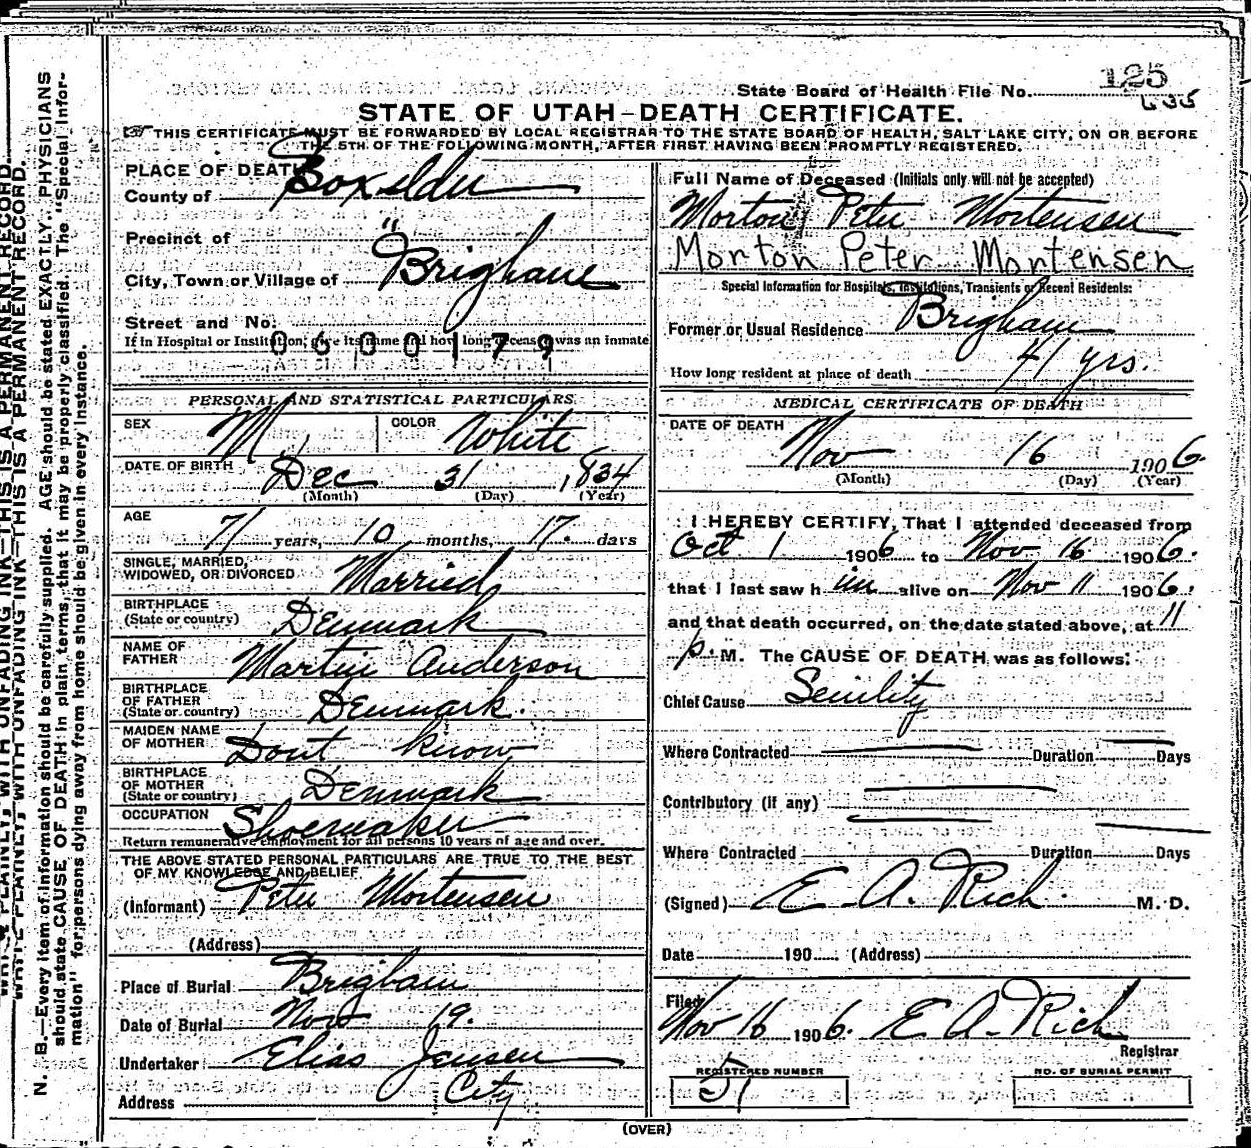 WRITE PLAINLY, WITH UNFADING INK—THIS IS A PERMANENT RECORD.
N. B.—Every item of information should be carefully supplied. AGE should be stated EXACTLY. PHYSICIANS
should state CAUSE OF DEATH in plain terms, that it may be properly classified. The "Special Infor-
mation" for persons dying away from home should be given in every instance.
125
State Board of Health File No.
STATE OF UTAH-DEATH CERTIFICATE.
THIS CERTIFICATE MUST BE FORWARDED BY LOCAL REGISTRAR TO THE STATE BOARD OF HEALTH, SALT LAKE CITY, ON OR BEFORE
THE 5TH OF THE FOLLOWING MONTH, AFTER FIRST HAVING BEEN PROMPTLY REGISTERED.
PLACE OF DEATH
County of Boxelder
Precinct of "
City, Town or Village of Brigham
Street and No.
If in Hospital or Institution, give its name and how long deceased was an inmate
0600179
PERSONAL AND STATISTICAL PARTICULARS
SEX M. COLOR White
DATE OF BIRTH Dec 31 1834
(Month) (Day) (Year)
AGE 71 years, 10 months, 17. days
SINGLE, MARRIED,
WIDOWED, OR DIVORCED Married
BIRTHPLACE
(State or country) Denmark
NAME OF
FATHER Martin Anderson
BIRTHPLACE
OF FATHER
(State or country) Denmark.
MAIDEN NAME
OF MOTHER Dont know
BIRTHPLACE
OF MOTHER
(State or country) Denmark
OCCUPATION Shoemaker
Return remunerative employment for all persons 10 years of age and over.
THE ABOVE STATED PERSONAL PARTICULARS ARE TRUE TO THE BEST
OF MY KNOWLEDGE AND BELIEF
(Informant) Peter Mortensen
(Address)
Place of Burial Brigham
Date of Burial Nov 19.
Undertaker Elias Jensen
Address City
Full Name of Deceased (Initials only will not be accepted)
Morton Peter Mortensen
Morton Peter Mortensen
Special Information for Hospitals, Institutions, Transients or Recent Residents:
Former or Usual Residence Brigham
How long resident at place of death 41 yrs.
MEDICAL CERTIFICATE OF DEATH
DATE OF DEATH
Nov 16 1906.
(Month) (Day) (Year)
I HEREBY CERTIFY, That I attended deceased from
Oct 1 1906 to Nov 16 1906.
that I last saw him alive on Nov 11 1906.
and that death occurred, on the date stated above, at 11
p. M. The CAUSE OF DEATH was as follows:
Chief Cause Senility
Where Contracted Duration Days
Contributory (if any)
Where Contracted Duration Days
(Signed) E. A. Rich. M. D.
Date 190 (Address)
Filed
Nov 16 1906. E A. Rich
Registrar
REGISTERED NUMBER NO. OF BURIAL PERMIT
51
(OVER)